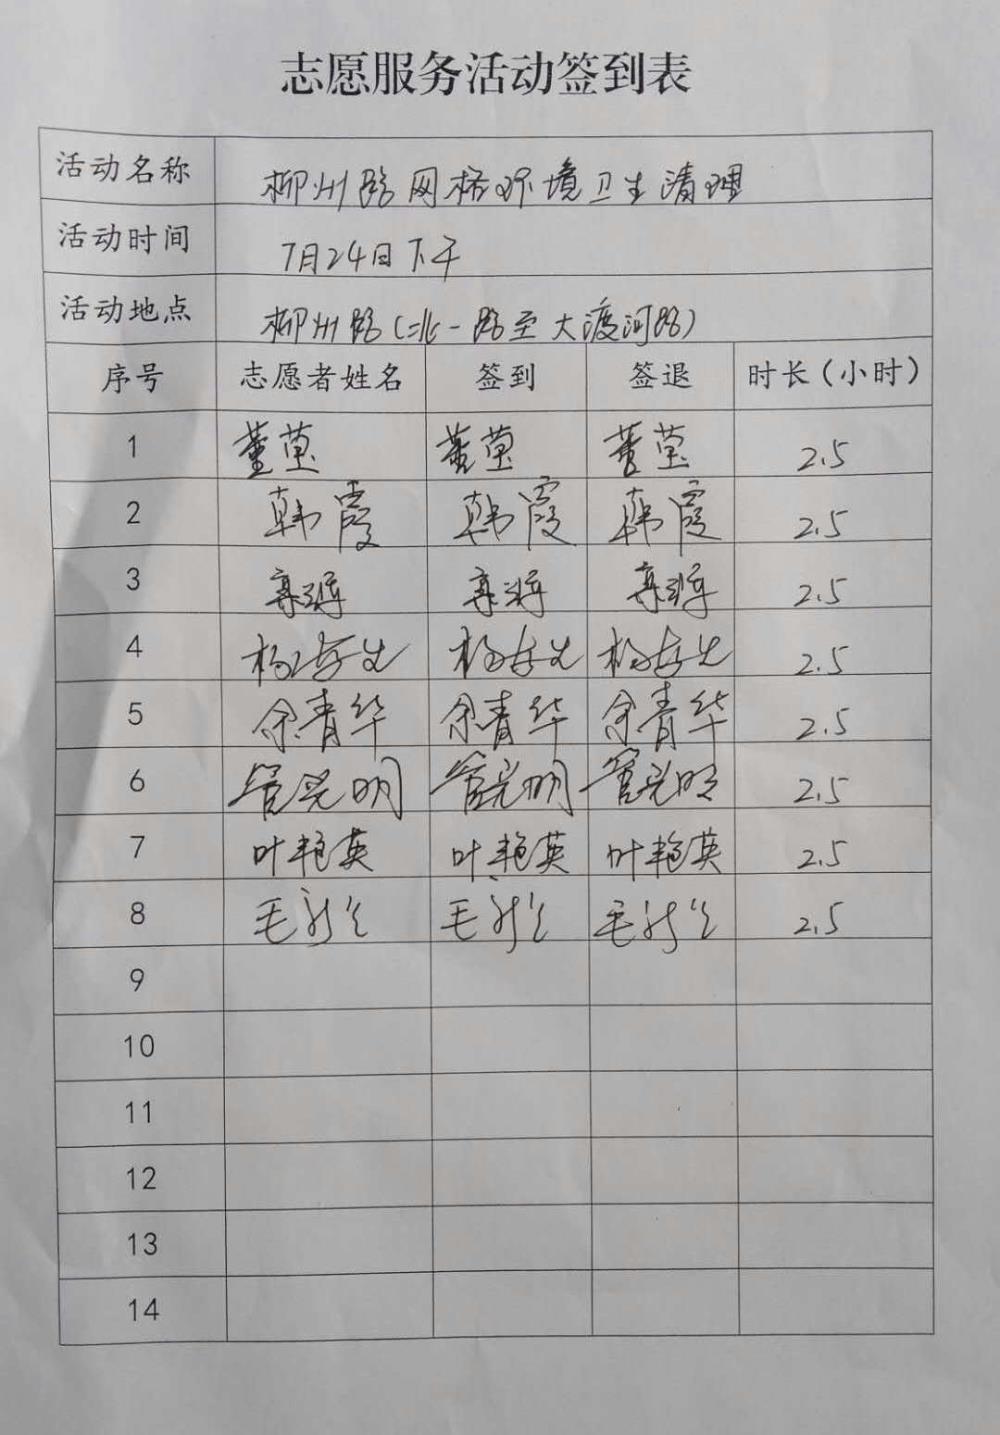 志愿服务活动签到表
活动名称 柳州路网格环境卫生清理
活动时间 7月24日下午
活动地点 柳州路(北一路至大渡河路)
序号 志愿者姓名 签到 签退 时长(小时)
1 董莹 董莹 董莹 2.5
2 韩霞 韩霞 韩霞 2.5
3 2.5
4 杨 杨 杨 2.5
5 余青华 余青华 余青华 2.5
6 管光明 管光明 管光明 2.5
7 叶艳英 叶艳英 叶艳英 2.5
8 毛 毛 毛 2.5
9
10
11
12
13
14